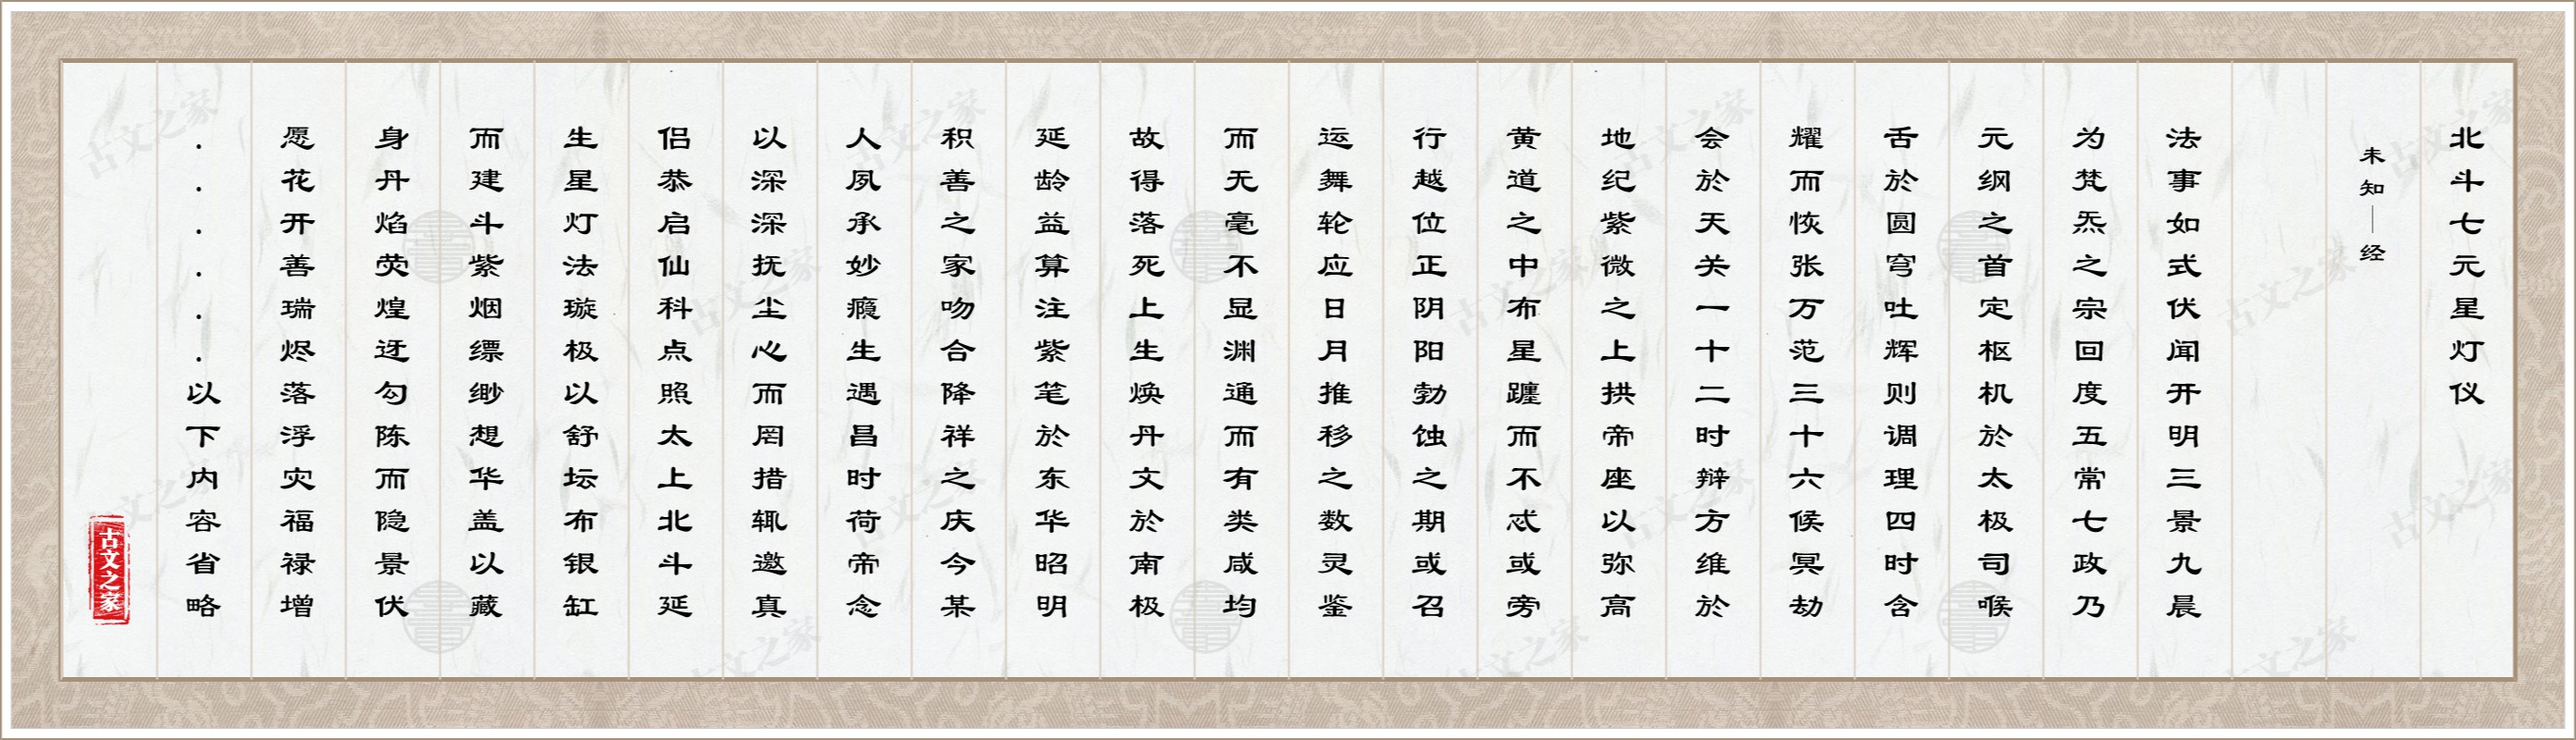 北斗七元星灯仪
未知｜经
法事如式伏闻开明三景九晨
为梵炁之宗回度五常七政乃
元纲之首定枢机於太极司喉
舌於圆穹吐辉则调理四时含
耀而恢张万范三十六候冥劫
会於天关一十二时辩方维於
地纪紫微之上拱帝座以弥高
黄道之中布星躔而不忒或旁
行越位正阴阳勃蚀之期或召
运舞轮应日月推移之数灵鉴
而无毫不显渊通而有类咸均
故得落死上生焕丹文於南极
延龄益算注紫笔於东华昭明
积善之家吻合降祥之庆今某
人夙承妙瘾生遇昌时荷帝念
以深深抚尘心而罔措辄邀真
侣恭启仙科点照太上北斗延
生星灯法璇极以舒坛布银缸
而建斗紫烟缥缈想华盖以藏
身丹焰荧煌迓勾陈而隐景伏
愿花开善瑞烬落浮灾福禄增
······以下内容省略
古文之家